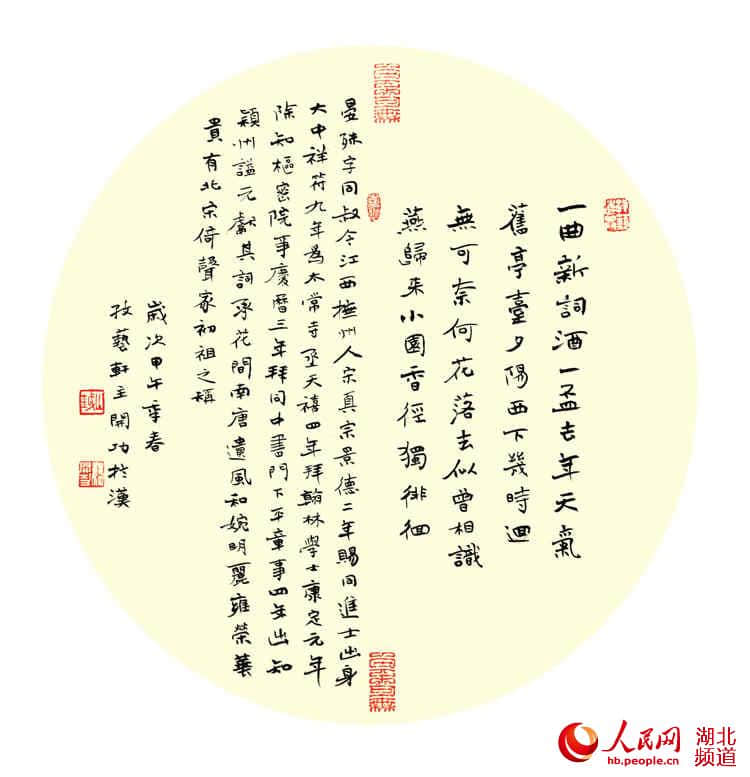 一曲新詞酒一盃去年天氣
舊亭臺夕陽西下幾時迴
無可奈何花落去似曾相識
燕歸來小園香徑獨徘徊
晏殊字同叔今江西撫州人宗真宗景德二年賜同進士出身
大中祥符九年為太常寺丞天禧四年拜翰林學士康定元年
除知樞密院事慶曆三年拜同中書門下平章事四年出知
潁州謚元獻其詞承花間南唐遺風和婉明麗雍榮華
貴有北宋倚聲家初祖之稱
歲次甲午季春
孜藝軒主開功於漢
人民网
hb.people.cn
湖北
频道